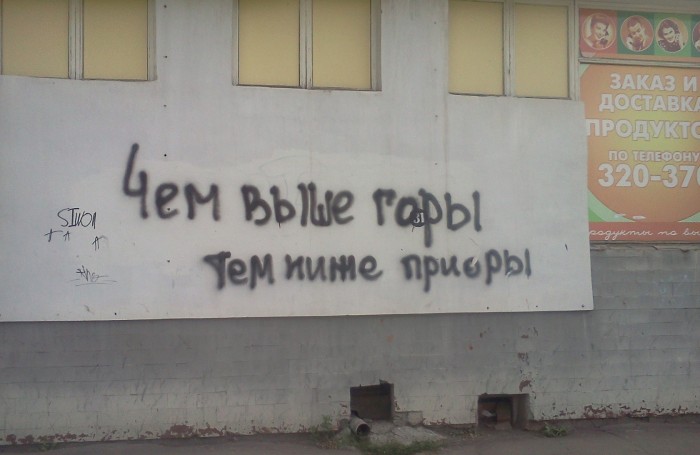 Чем выше горы
тем ниже приоры
SIKOI
ЗАКАЗ И
ДОСТАВКА
ПРОДУКТО
ПО ТЕЛЕФОНУ
320-370
родукты на вы